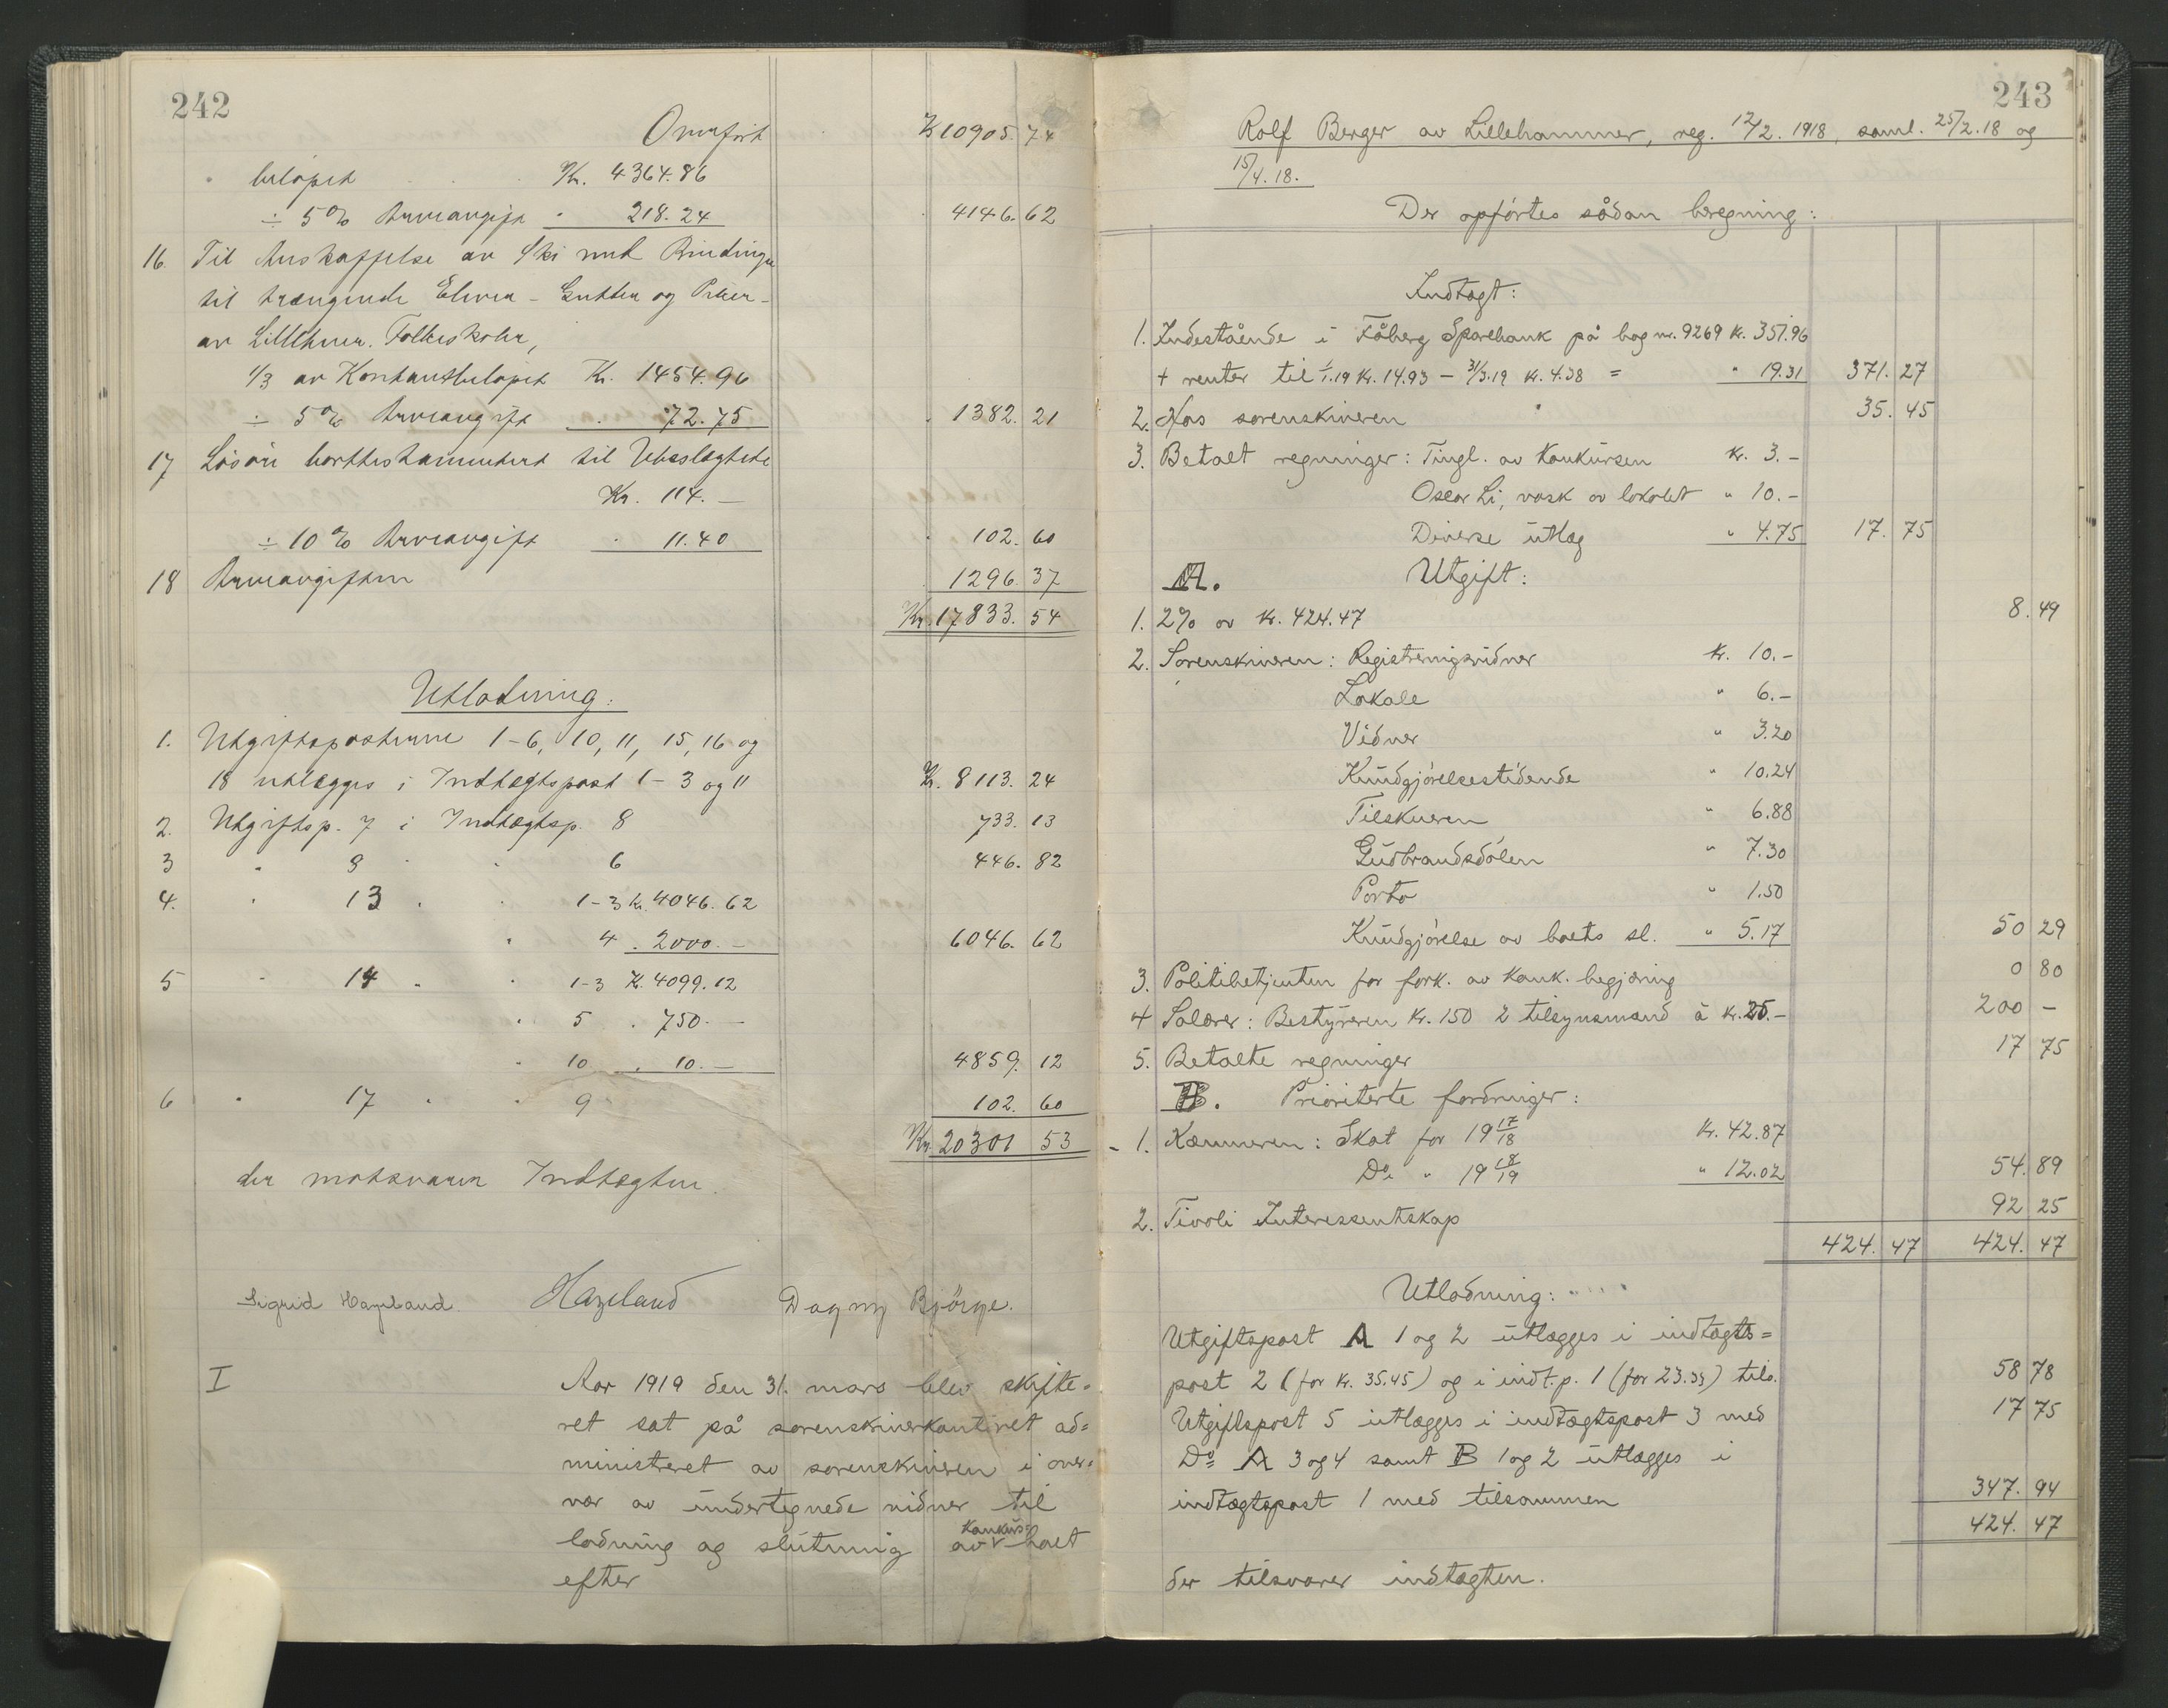 242
Omført Kr. 10905. 74
beløpet Kr. 4364.86
÷ 5% Arveavgift " 218.24 4146. 62
16. Til Anskaffelse av Ski med Bindinger
til trængende Elever - Gutter og Piker -
av Lillehmer. Folkeskoler,
1/3 av Kontantbeløpet Kr. 1454.96
÷ 5% Arveavgift 72.75 1382. 21
17 Løsøre borttestamentert til Ubeslegtede
Kr. 114. —
÷ 10% Arveavgift 11.40 102. 60
18 Arveavgiften 1296. 37
Kr. 17833. 54
Utlodning:
1. Utgiftspostene 1-6, 10, 11, 15, 16 og
18 utlægges i Indtægtspost 1-3 og 11 Kr. 8113. 24
2. Utgiftsp. 7 i Indtægtsp. 8 733. 13
3 " 9 " " 6 446. 82
4. " 13 " " 1-3 Kr. 4046. 62
" 4 " 2000. — 6046. 62
5 " 14 " " 1-3 Kr. 4099. 12
" 5 " 750. —
" 10 " 10. — 4859. 12
6 " 17 " " 9 102. 60
Kr. 20301 53
der motsvarer Indtægten.
Sigrid Hazeland. Hazeland Dagny Bjørge.
I Aar 1919 den 31. mars blev skifte=
ret sat på sorenskriverkontoret ad=
ministreret av sorenskriveren i over=
vær av undertegnede vidner til
lodning og slutning av konkurs- boet
efter
243
Rolf Berger av Lillehammer, reg. 12/2. 1918, saml. 25/2.18 og
15/4.18.
Der opførtes sådan beregning:
Indtægt:
1. Indestående i Fåberg Sparebank på bog nr. 9269 kr. 351.96
+ renter til 1/1.19 kr. 14.93 - 31/3.19 kr. 4.38 = " 19.31 371. 27
2. Hos sorenskriveren 35. 45
3. Betalt regninger: Tingl. av Konkursen kr. 3.-
Oscar Li, vask av lokalet " 10.-
Diverse utlæg " 4.75 17. 75
A. Utgift:
1. 2% av kr. 424.47 8. 49
2. Sorenskriveren: Registreringsvidner kr. 10.-
Lokale " 6.-
Vidner " 3.20
Kundgjørelsestidende " 10.24
Tilskueren " 6.88
Gudbrandsdølen " 7.30
Porto " 1.50
Kundgjørelse av boets sl. " 5.17 50 29
3. Politibetjenten for fork. av konk. begjæring 0 80
4 Salærer: Bestyreren kr. 150 2 tilsynsmænd à kr. 25.- 200 -
5. Betalte regninger 17 75
B. Prioriterte fordringer:
1. Kæmneren: Skat for 19 17/18 kr. 42.87
Do " 19 18/19 " 12.02 54. 89
2. Tivoli Interessentskap 92 25
424. 47 424. 47
Utlodning:
Utgiftspost A 1 og 2 utlægges i indtægts=
post 2 (for kr. 35.45) og i indt.p. 1 (for 23.33) tils. 58 78
Utgiftspost 5 utlægges i indtægtspost 3 med 17 75
Do A 3 og 4 samt B 1 og 2 utlægges i
indtægtspost 1 med tilsammen 347. 94
424. 47
der tilsvarer indtægten.